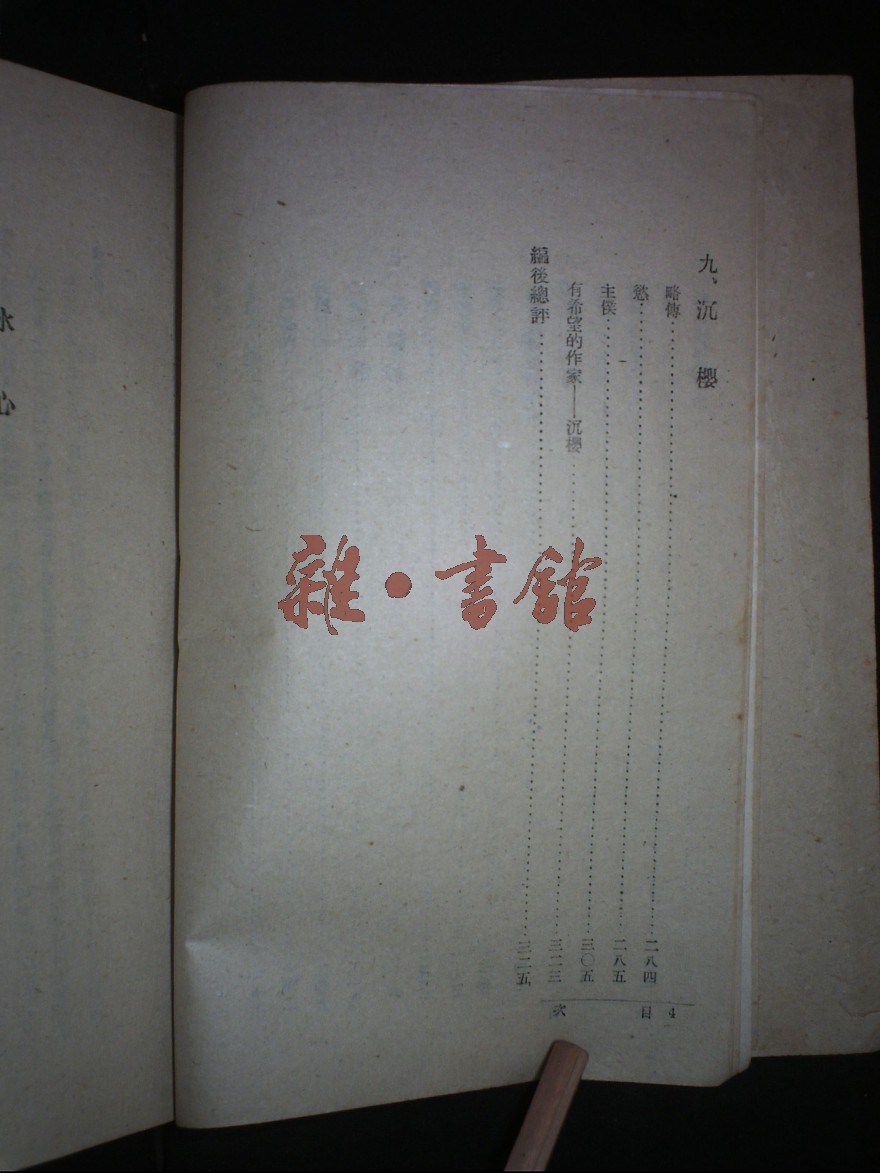 九、沉櫻
略傳……二八四
慾……二八五
主僕……三〇五
有希望的作家——沉櫻……三二三
編後總評……三二五
目次 4
雜·書館
冰心